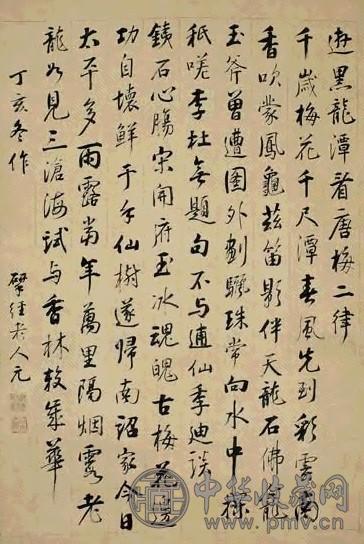 遊黑龍潭看唐梅二律
千歲梅花千尺潭春風先到彩雲南
香吹蒙鳳龜茲笛影伴天龍石佛龕
玉斧曾遭圖外劃驪珠常向水中探
秖嗟李杜無題句不与逋仙季迪談
銕石心腸宋開府玉冰魂魄古梅花邊
功自壞鮮于手仙樹遂歸南詔家今日
太平多雨露當年萬里隔烟霞老
龍如見三滄海試与香林較歲華
丁亥冬作
揅經老人元
中华收藏网
www.pmv.cn